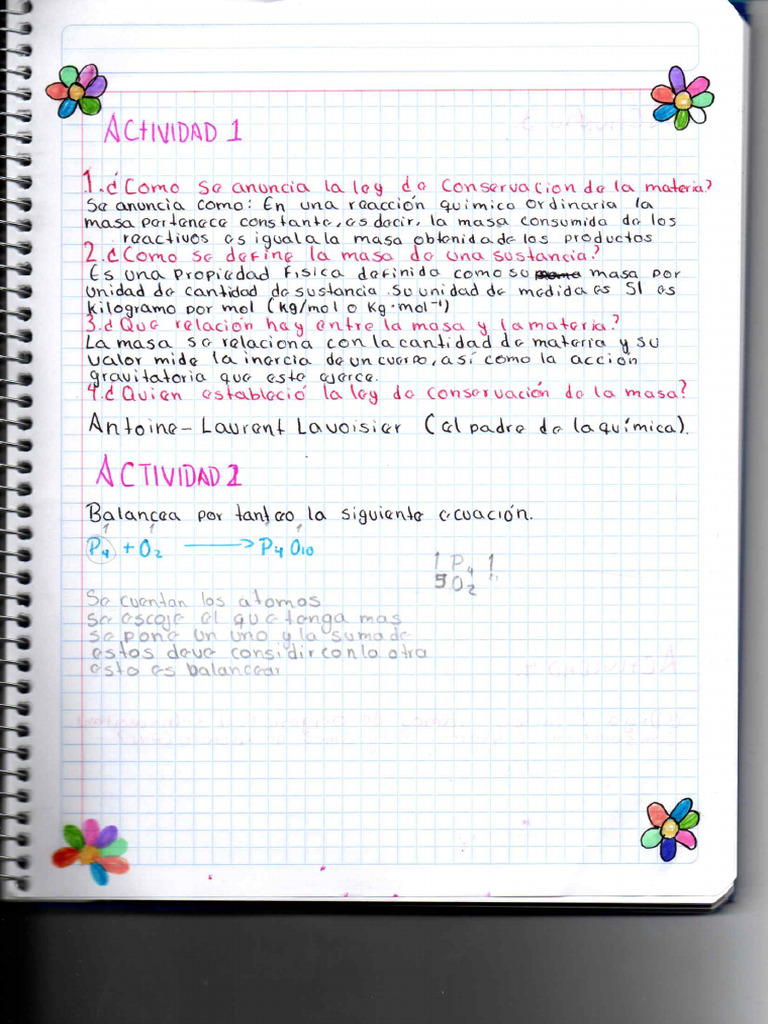 ACTIVIDAD 1
1. ¿Como se anuncia la ley de conservacion de la materia?
Se anuncia como: En una reacción quimico ordinaria la
masa pertenece constante, es decir, la masa consumida de los
reactivos es igual a la masa obtenida de los productos
2. ¿Como se define la masa de una sustancia?
Es una propiedad fisica definida como su masa por
unidad de cantidad de sustancia. Su unidad de medida es SI es
kilogramo por mol (kg/mol o kg·mol⁻¹)
3. ¿Que relación hay entre la masa y la materia?
La masa se relaciona con la cantidad de materia y su
valor mide la inercia de un cuerpo, así como la acción
gravitatoria que este ejerce.
4. ¿Quien estableció la ley de conservación de la masa?
Antoine-Laurent Lavoisier (el padre de la química).
ACTIVIDAD 2
Balancea por tanteo la siguiente ecuación.
1 1 1 1
P₄ + O₂ → P₄ O₁₀
1 P₄ 1
5 O₂
Se cuentan los atomos
se escoje el que tenga mas
se pone un uno y la suma de
estos deve considir con lo otra
esto es balancear